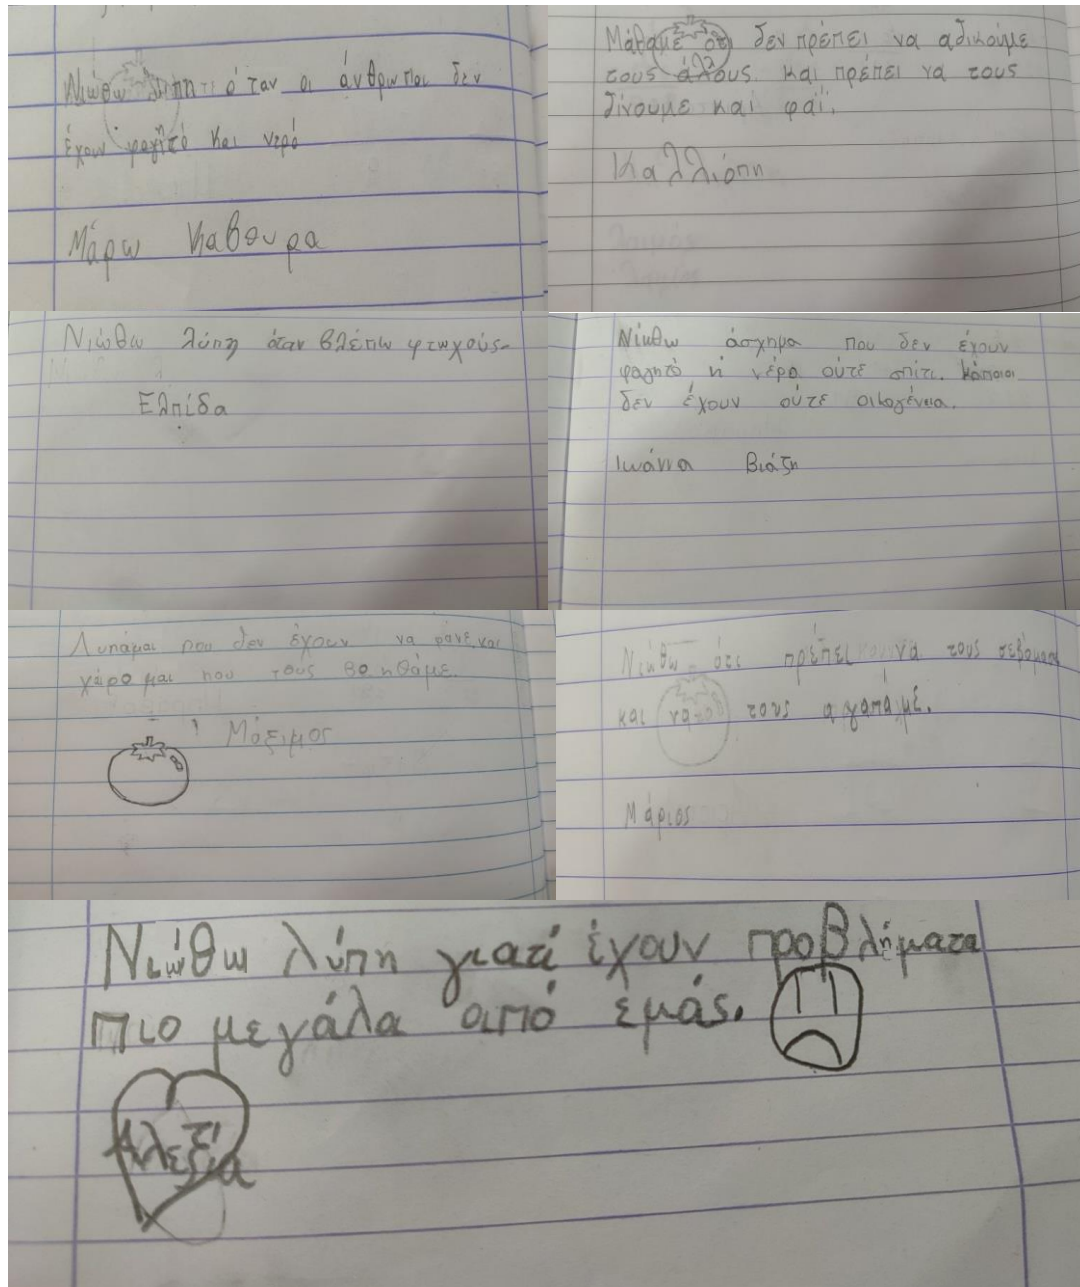 Νιώθω λύπη ότι όταν οι άνθρωποι δεν
έχουν φαγητό και νερό
Μάρω Καβουρα
Μάθαμε ότι δεν πρέπει να αδικούμε
τους άλλους και πρέπει να τους
δίνουμε και φαΐ.
Καλλιόπη
Νιώθω λύπη όταν βλέπω φτωχούς.
Ελπίδα
Νιώθω άσχημα που δεν έχουν
φαγητό ή νέρο ούτε σπίτι. Κάποιοι
δεν έχουν ούτε οικογένεια.
Ιωάννα Βιάζη
Λυπάμαι που δεν έχουν να φάνε και
χαίρομαι που τους βοηθάμε.
Μάξιμος
Νιώθω ότι πρέπει να τους σεβόμαστε
και να τους αγαπάμε.
Μάριος
Νιώθω λύπη γιατί έχουν προβλήματα
πιο μεγάλα από εμάς.
Αλεξία